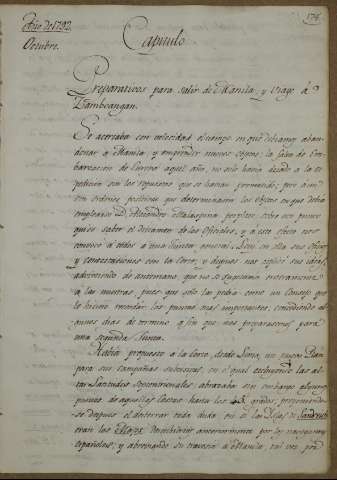 Año de 1792.
174
Octubre.
Capitulo
Preparativos para salir de Manila, y viage á
Zamboangan.
Se acercaba con velocidad el tiempo en que debiamos aban-
donar á Manila, y emprender nuevos objetos: la falta de Em-
barcacion de aquel año, no solo havia dexado á la
los repuestos que se havian formado; pero aun
sin ordenes positivas que determinasen los objetos en que debia
emplearse. Dn. Alexandro Malaspina perplexo, sobre este punto
quiso saber el dictamen de los Oficiales, y á este efecto nos
convocó á todos á una Junta general. Leyó en ella sus
y contextaciones con la Corte; y despues nos expuso sus ideas,
advirtiendo de antemano, que no se sugetaria
á las nuestras, pues que solo las pedia como un Consejo que
le hiciese recordar los puntos mas importantes, concediendo al-
gunos dias de termino á fin que nos preparasemos para
una segunda Junta.
Habia propuesto á la Corte, desde Lima, un nuevo Plan
para sus campañas subcesivas, en el qual excluyendo las al-
tas Latitudes Septentrionales abrazaba sin embargo algunos
puntos de aquellas Costas hasta los 45 grados; proponiendo-
se despues el desterrar toda duda en si las Yslas de Sandwich
eran las descubiertas anteriormente por los navegantes
Españoles; y abreviando su travesía á Manila, tal vez por